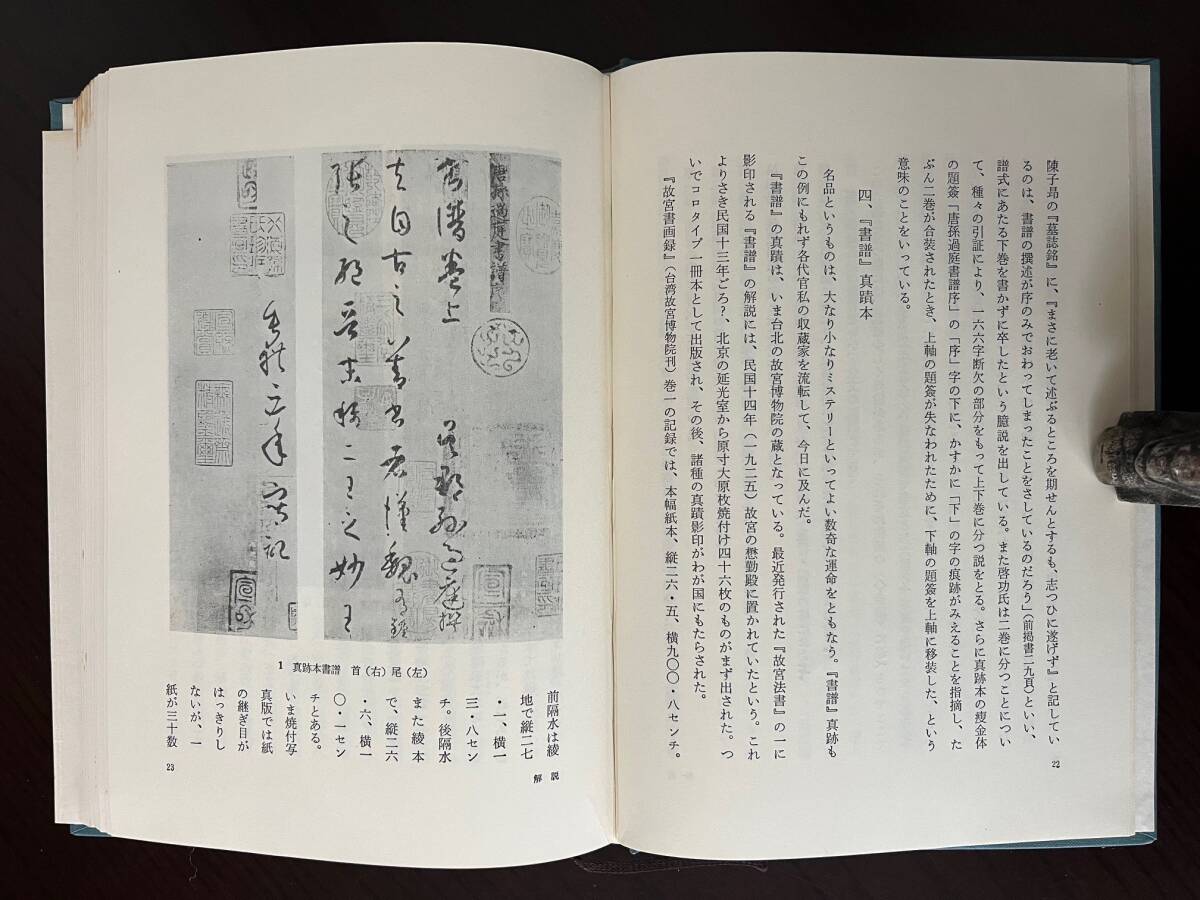 陳子昻の『墓誌銘』に、『まさに老いて述ぶるところを期せんとするも、志つひに遂げず』と記してい
るのは、書譜の撰述が序のみでおわってしまったことをさしているのだろう」(前掲書二九頁)といい、
譜式にあたる下巻を書かずに卒したという臆説を出している。また啓功氏は二巻に分つことについ
て、種々の引証により、一六六字断欠の部分をもって上下巻に分つ説をとる。さらに真跡本の痩金体
の題簽「唐孫過庭書譜序」の「序」字の下に、かすかに「下」の字の痕跡がみえることを指摘し、た
ぶん二巻が合装されたとき、上軸の題簽が失なわれたために、下軸の題簽を上軸に移装した、という
意味のことをいっている。
四、『書譜』真蹟本
名品というものは、大なり小なりミステリーといってよい数奇な運命をともなう。『書譜』真跡も
この例にもれず各代官私の収蔵家を流転して、今日に及んだ。
『書譜』の真蹟は、いま台北の故宮博物院の蔵となっている。最近発行された『故宮法書』の一に
影印される『書譜』の解説には、民国十四年(一九二五)故宮の懋勤殿に置かれていたという。これ
よりさき民国十三年ごろ?、北京の延光室から原寸大原枚焼付け四十六枚のものがまず出された。つ
いでコロタイプ一冊本として出版され、その後、諸種の真蹟影印がわが国にもたらされた。
『故宮書画録』(台湾故宮博物院刊)巻一の記録では、本幅紙本、縦二六・五、横九〇〇・八センチ。
22
唐孫過庭書譜序
書譜巻上 呉郡孫過庭撰
夫自古之善書者漢魏有鍾
張之絶晋末称二王之妙王
垂拱三年写記
宣和
1 真跡本書譜 首(右)尾(左)
前隔水は綾
地で縦二七
・一、横一
三・八セン
チ。後隔水
また綾本
で、縦二六
・六、横一
〇・一セン
チとある。
いま焼付写
真版では紙
の継ぎ目が
はっきりし
ないが、一
紙が三十数
23
解説